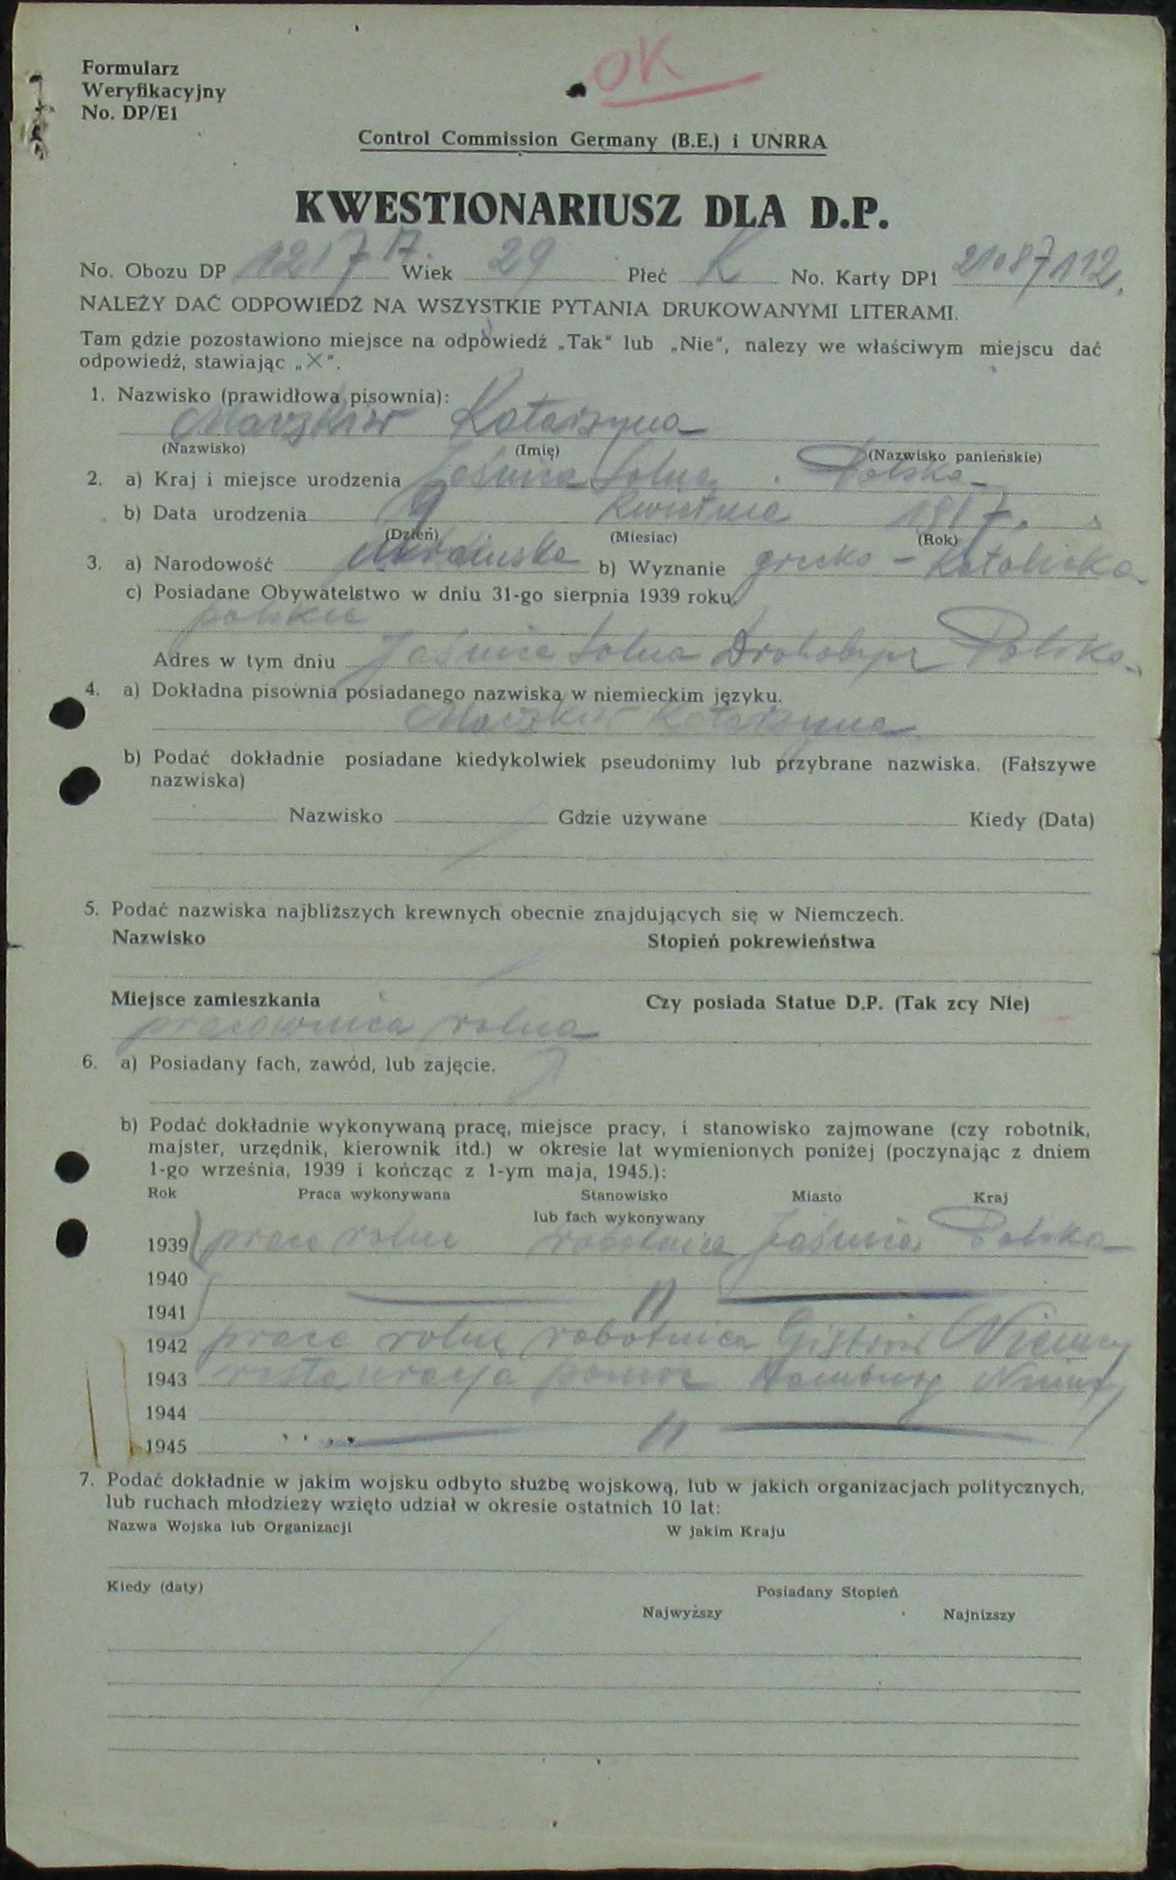 OK
Formularz
Weryfikacyjny
No. DP/E1
Control Commission Germany (B.E.) i UNRRA
KWESTIONARIUSZ DLA D.P.
No. Obozu DP 1217 A. Wiek 29 Płeć K No. Karty DP1 21087112.
NALEŻY DAĆ ODPOWIEDŹ NA WSZYSTKIE PYTANIA DRUKOWANYMI LITERAMI.
Tam gdzie pozostawiono miejsce na odpowiedź „Tak" lub „Nie", nalezy we właściwym miejscu dać
odpowiedź, stawiając „X".
1. Nazwisko (prawidłowa pisownia):
Katarzyna
(Nazwisko) (Imię) (Nazwisko panieńskie)
2. a) Kraj i miejsce urodzenia Jaśnica Solna, Polska
b) Data urodzenia 9 kwietnia 1917.
(Dzień) (Miesiac) (Rok)
3. a) Narodowość b) Wyznanie grcko - Katolicka
c) Posiadane Obywatelstwo w dniu 31-go sierpnia 1939 roku.
polskie
Adres w tym dniu Jaśnica Solna Drohobycz Polska
4. a) Dokładna pisownia posiadanego nazwiska w niemieckim języku.
Katarzyna
b) Podać dokładnie posiadane kiedykolwiek pseudonimy lub przybrane nazwiska. (Fałszywe
nazwiska)
Nazwisko Gdzie używane Kiedy (Data)
5. Podać nazwiska najbliższych krewnych obecnie znajdujących się w Niemczech.
Nazwisko Stopień pokrewieństwa
Miejsce zamieszkania Czy posiada Statue D.P. (Tak zcy Nie)
pracownica rolna
6. a) Posiadany fach, zawód, lub zajęcie.
b) Podać dokładnie wykonywaną pracę, miejsce pracy, i stanowisko zajmowane (czy robotnik,
majster, urzędnik, kierownik itd.) w okresie lat wymienionych poniżej (poczynając z dniem
1-go września, 1939 i kończąc z 1-ym maja, 1945.):
Rok Praca wykonywana Stanowisko Miasto Kraj
lub fach wykonywany
1939 prace rolne robotnica Jaśnica Polska
1940
1941 "
1942 prace rolne robotnica Niemcy
1943 restauracja pomoc Hamburg Niemcy
1944
1945 "
7. Podać dokładnie w jakim wojsku odbyto służbę wojskową, lub w jakich organizacjach politycznych,
lub ruchach młodzieży wzięto udział w okresie ostatnich 10 lat:
Nazwa Wojska lub Organizacji W jakim Kraju
Kiedy (daty) Posiadany Stopień
Najwyższy Najnizszy